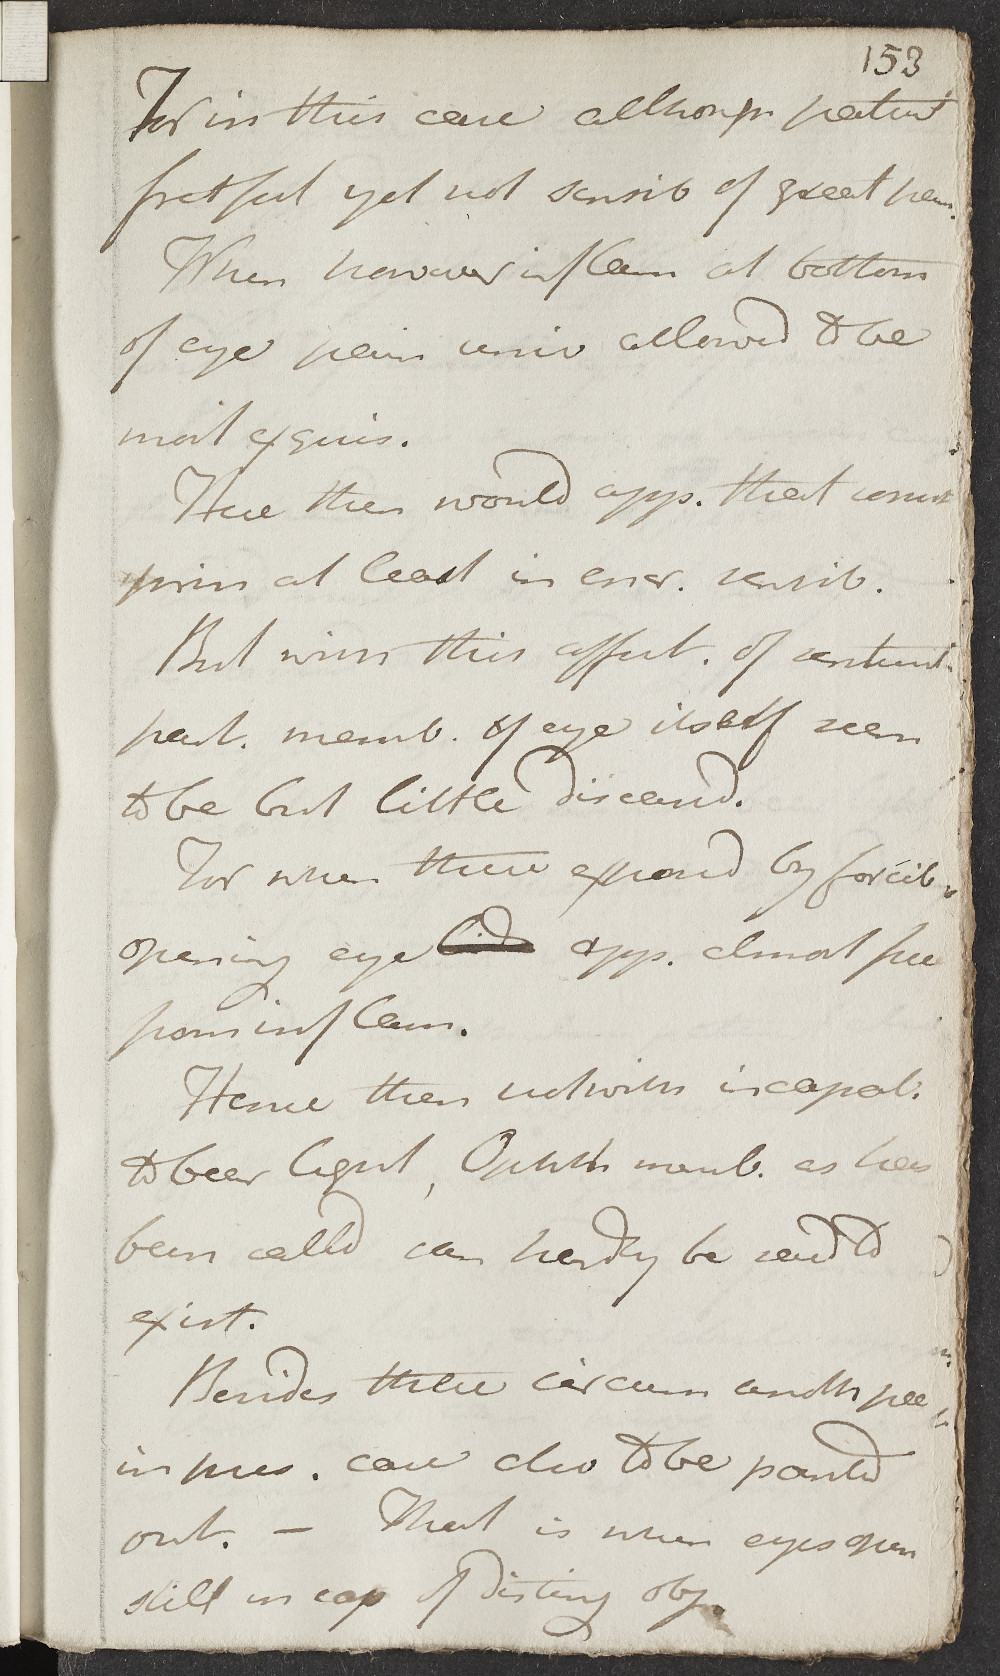 153
For in this case although patient
fretful yet not sensib of great pain.
When however inflam at bottom
of eye pain univ allowed to be
most exquis.
Here then would app. that consist
prin at least in encr. sensib.
But with this affect. of
part. memb. of eye itself seem
to be but little diseased.
For when these exposed by forcib
opening eye lid app. almost free
from inflam.
Hence then notwith incapab.
to bear light, Ophth memb. as has
been called can hardly be said to
exist.
Besides these circum anoth pec
in pres. case also to be pointed
out. — That is when eyes open
still incap of disting obj.